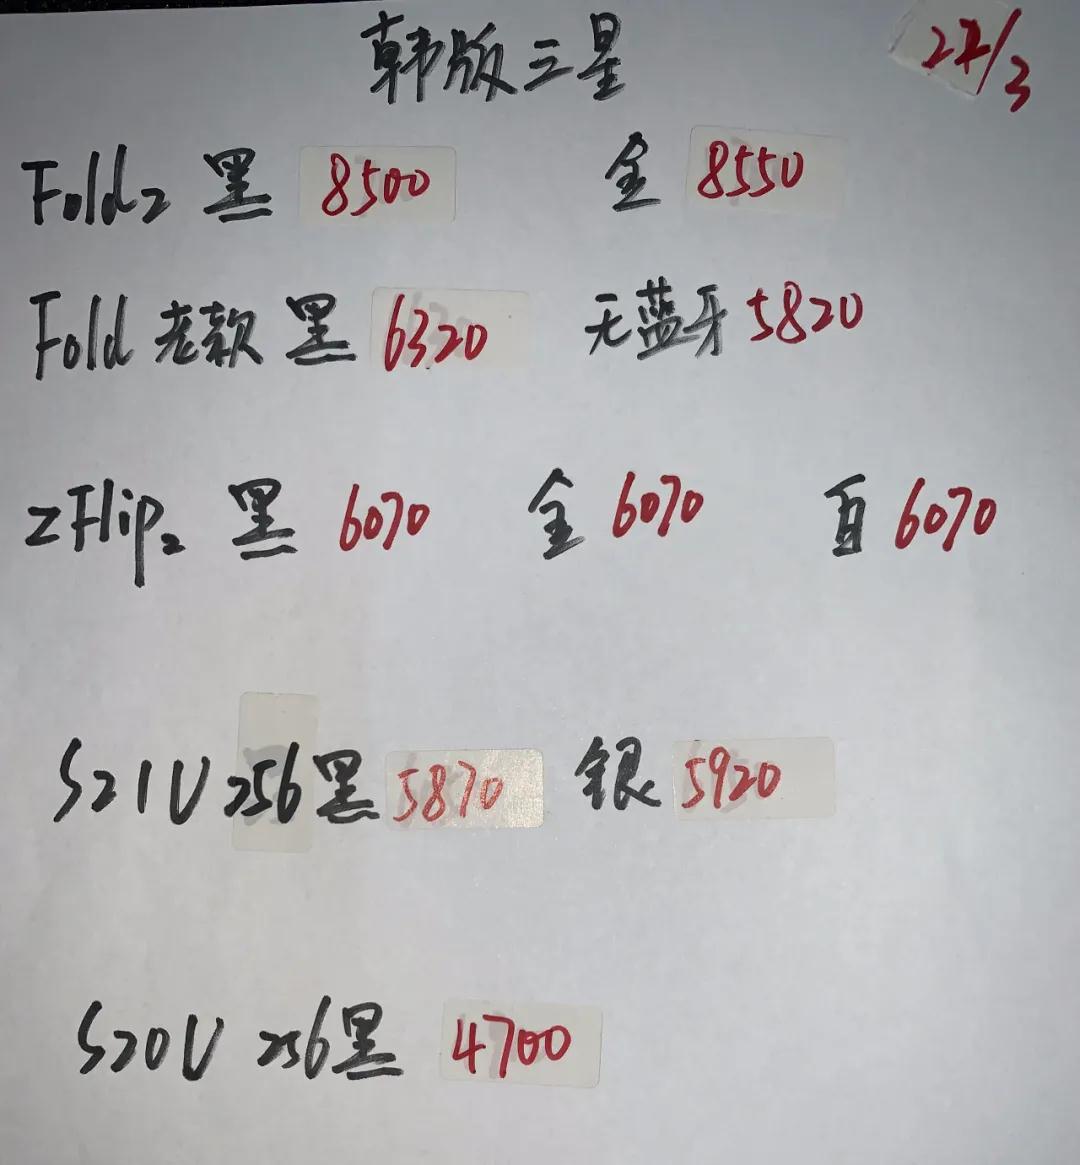 韩版三星 27/3
Fold2 黑 8500 金 8550
Fold 老款 黑 6320 无蓝牙 5820
ZFlip2 黑 6070 金 6070 白 6070
S21U 256 黑 5870 银 5920
S20U 256 黑 4700